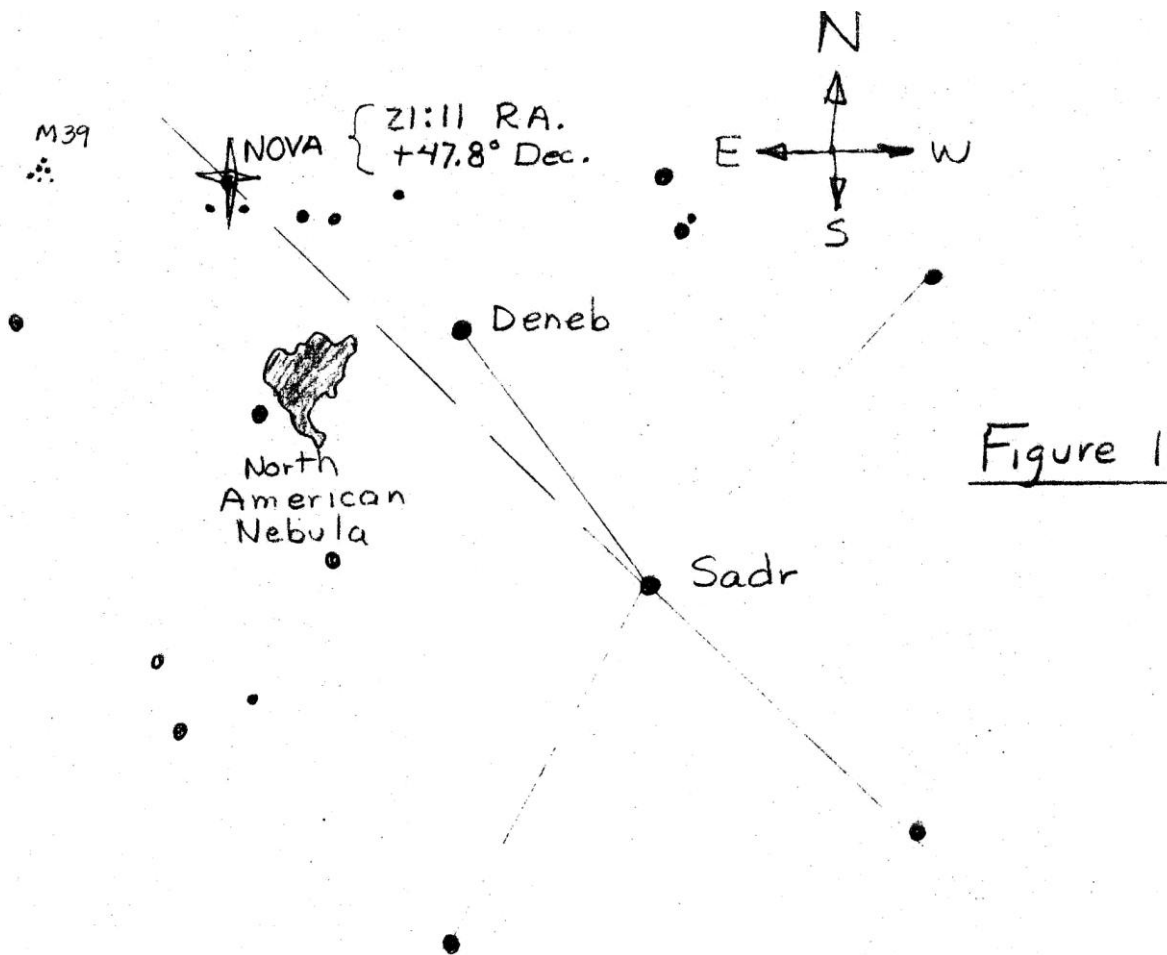 N
M39
NOVA
21:11 R.A.
+47.8° Dec.
E
W
S
Deneb
North
American
Nebula
Figure 1
Sadr